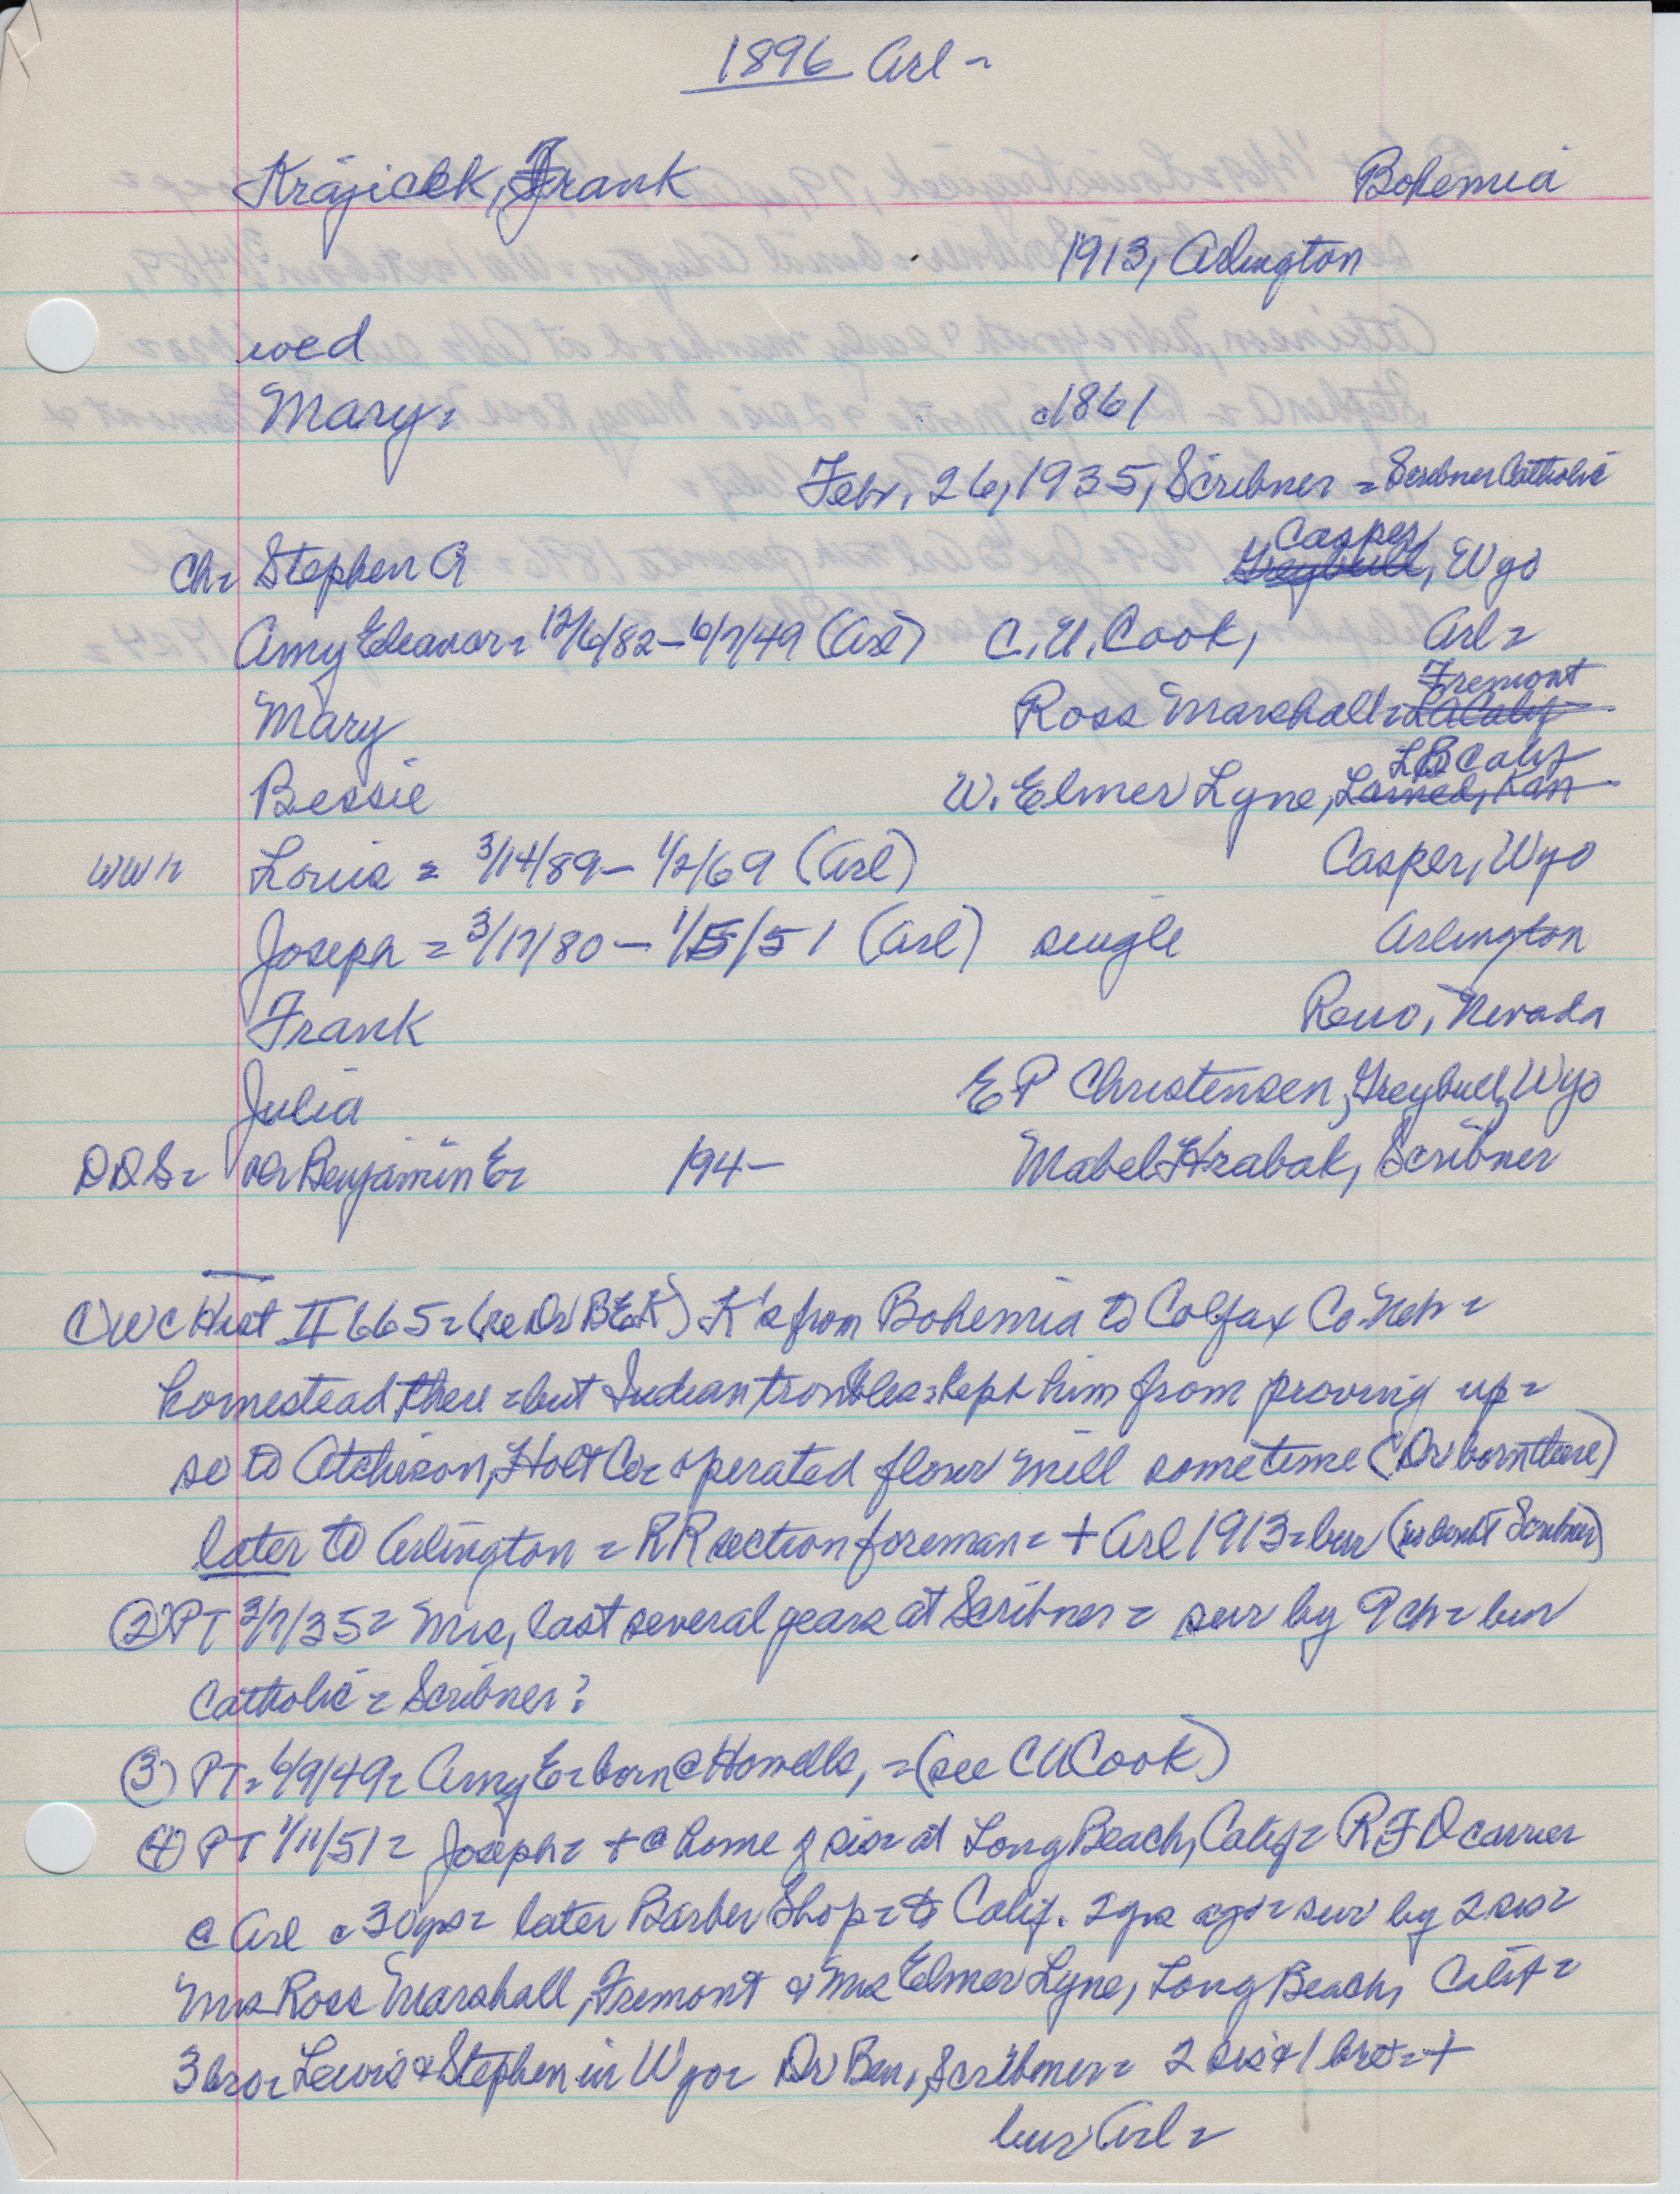 1896 Arl =
Krajicek, Frank Bohemia
1913, Arlington
wed
Mary = c1861
Febr. 26, 1935, Scribner = Scribner Catholic
Casper,
Ch = Stephen A Greybull, Wyo
Amy Eleanor = 12/6/82 - 6/7/49 (Arl) C.U. Cook, Arl =
Fremont
Mary Ross Marshall = LA Calif
LB Calif
Bessie W. Elmer Lyne, Larned, Kan
WW1 = Louis = 3/14/89 - 1/2/69 (Arl) Casper, Wyo
Joseph = 3/17/80 - 1/5/51 (Arl) single Arlington
Frank Reno, Nevada
Julia E P Christensen, Greybull, Wyo
DDS = Benjamin E = 194- Mabel Hrabak, Scribner
① WC Hist II 665 = (re Dr BEK) K's from Bohemia to Colfax Co. Neb =
homestead there = but Indian troubles = kept him from proving up =
so to Atchison, Holt Co = operated flour mill sometime (Dr born there)
later to Arlington = RR section foreman = + Arl 1913 = bur Scribner)
② PT 3/7/35 = Mrs, last several years at Scribner = sur by 9 ch = bur
Catholic = Scribner?
③ PT = 6/9/49 = Amy E = born @ Howells, = (see CU Cook)
④ PT 1/11/51 = Joseph = + @ home of sis = at Long Beach, Calif = RFD carrier
@ Arl c 30 yrs = later Barber Shop = to Calif. 2 yrs ago = sur by 2 sis =
Mrs Ross Marshall, Fremont & Mrs Elmer Lyne, Long Beach, Calif =
3 bro = Lewis & Stephen in Wyo = Dr Ben, Scribner = 2 sis & 1 bro = +
bur Arl =